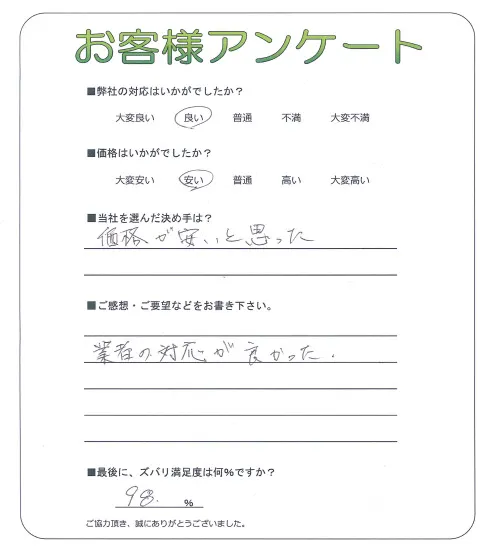 お客様アンケート
■弊社の対応はいかがでしたか？
大変良い 良い 普通 不満 大変不満
■価格はいかがでしたか？
大変安い 安い 普通 高い 大変高い
■当社を選んだ決め手は？
価格が安いと思った
■ご感想・ご要望などをお書き下さい。
業者の対応が良かった.
■最後に、ズバリ満足度は何%ですか？
98. %
ご協力頂き、誠にありがとうございました。